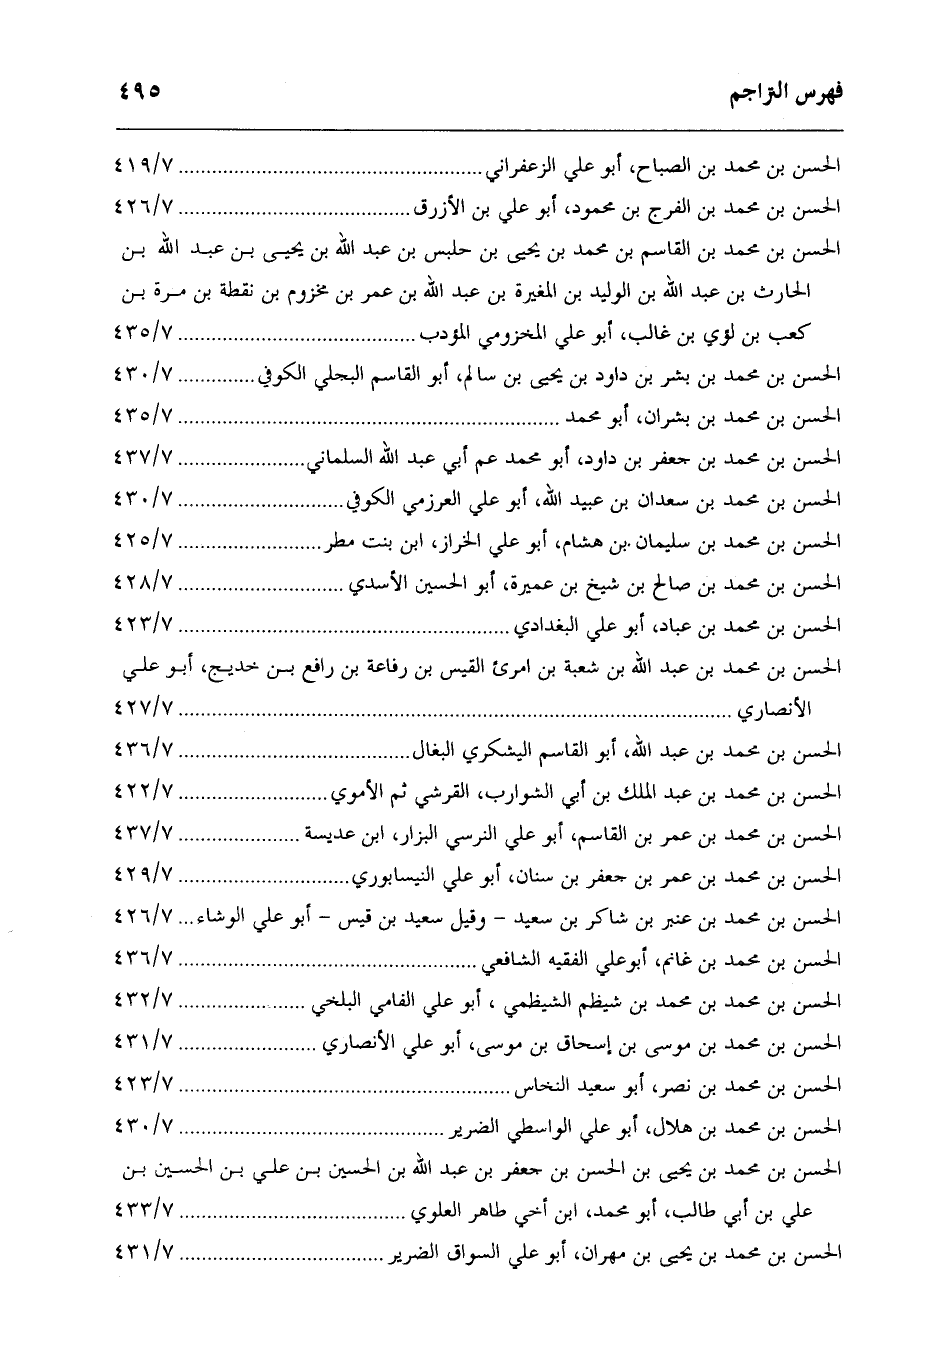 فهرس التراجم ٤٩٥
الحسن بن محمد بن الصباح، أبو علي الزعفراني ................ ٤١٩/٧
الحسن بن محمد بن الفرج بن محمود، أبو علي بن الأزرق ................ ٤٢٦/٧
الحسن بن محمد بن القاسم بن محمد بن يحيى بن حلبس بن عبد الله بن يحيى بن عبد الله بن
الحارث بن عبد الله بن الوليد بن المغيرة بن عبد الله بن عمر بن مخزوم بن نقطة بن مرة بن
كعب بن لؤي بن غالب، أبو علي المخزومي المؤدب ................ ٤٣٥/٧
الحسن بن محمد بن بشر بن داود بن يحيى بن سالم، أبو القاسم البجلي الكوفي ................ ٤٣٠/٧
الحسن بن محمد بن بشران، أبو محمد ................ ٤٣٥/٧
الحسن بن محمد بن جعفر بن داود، أبو محمد عم أبي عبد الله السلماني ................ ٤٣٧/٧
الحسن بن محمد بن سعدان بن عبيد الله، أبو علي العرزمي الكوفي ................ ٤٣٠/٧
الحسن بن محمد بن سليمان بن هشام، أبو علي الخراز، ابن بنت مطر ................ ٤٢٥/٧
الحسن بن محمد بن صالح بن شيخ بن عميرة، أبو الحسين الأسدي ................ ٤٢٨/٧
الحسن بن محمد بن عباد، أبو علي البغدادي ................ ٤٢٣/٧
الحسن بن محمد بن عبد الله بن شعبة بن امرئ القيس بن رفاعة بن رافع بن خديج، أبو علي
الأنصاري ................ ٤٢٧/٧
الحسن بن محمد بن عبد الله، أبو القاسم اليشكري البغال ................ ٤٣٦/٧
الحسن بن محمد بن عبد الملك بن أبي الشوارب، القرشي ثم الأموي ................ ٤٢٢/٧
الحسن بن محمد بن عمر بن القاسم، أبو علي النرسي البزار، ابن عديسة ................ ٤٣٧/٧
الحسن بن محمد بن عمر بن جعفر بن سنان، أبو علي النيسابوري ................ ٤٢٩/٧
الحسن بن محمد بن عنبر بن شاكر بن سعيد – وقيل سعيد بن قيس – أبو علي الوشاء ... ٤٢٦/٧
الحسن بن محمد بن غانم، أبوعلي الفقيه الشافعي ................ ٤٣٦/٧
الحسن بن محمد بن محمد بن شيظم الشيظمي ، أبو علي الفامي البلخي ................ ٤٣٢/٧
الحسن بن محمد بن موسى بن إسحاق بن موسى، أبو علي الأنصاري ................ ٤٣١/٧
الحسن بن محمد بن نصر، أبو سعيد النخاس ................ ٤٢٣/٧
الحسن بن محمد بن هلال، أبو علي الواسطي الضرير ................ ٤٣٠/٧
الحسن بن محمد بن يحيى بن الحسن بن جعفر بن عبد الله بن الحسين بن علي بن الحسين بن
علي بن أبي طالب، أبو محمد، ابن أخي طاهر العلوي ................ ٤٣٣/٧
الحسن بن محمد بن يحيى بن مهران، أبو علي السواق الضرير ................ ٤٣١/٧